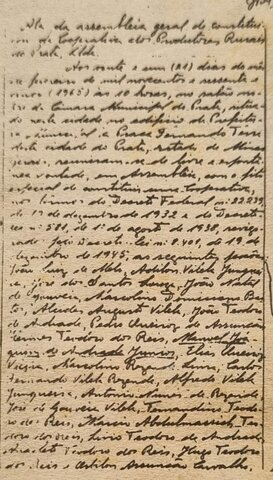 Ata da assembleia geral de constitui-
ção da Cooperativa dos Produtores Rurais
do Prata, Ltda.
Aos vinte e um (21) dias do mês
de fevereiro de mil novecentos e sessenta e
cinco (1965) às 10 horas, no salão no-
bre da Câmara Municipal de Prata, situa-
do nesta cidade no edifício da Prefeitu-
ra Municipal, à Praça Fernando Terra
desta cidade do Prata, estado de Minas
Gerais, reuniram-se de livre e espontâ-
nea vontade, em Assembleia, com o fito
especial de constituir uma Cooperativa,
nos termos do Decreto Federal nº 22.239,
de 19 de dezembro de 1932 e do Decreto-
lei nº 581, de 1º de agosto de 1938, revigo-
rado pelo Decreto-lei nº 8.401, de 19 de
dezembro de 1945, as seguintes pessoas:
João Luiz de Melo, Adilon Vilela Junquei-
ra, José dos Santos, João Natal
de Gouveia, Marcolino Domiciano Bas-
tos, Alcides Augusto Vilela, João Teodoro
de Andrade, Pedro Queiroz de Assunção,
Teodoro dos Reis, Manoel
de Andrade Junior, Elias Queiroz
Vieira, Marcolino Rezende, Carlos
Fernando Vilela Rezende, Alfredo Vilela
Junqueira, Antonio Nunes de Rezende,
José de Gouveia Vilela, Fernandino Teodo-
ro dos Reis, Marcio Abdulmassih, Teo-
doro dos Reis, Livio Teodoro de Andrade,
Anacleto Teodoro dos Reis, Hugo Teodoro
dos Reis e Adilon Assunção Carvalho,